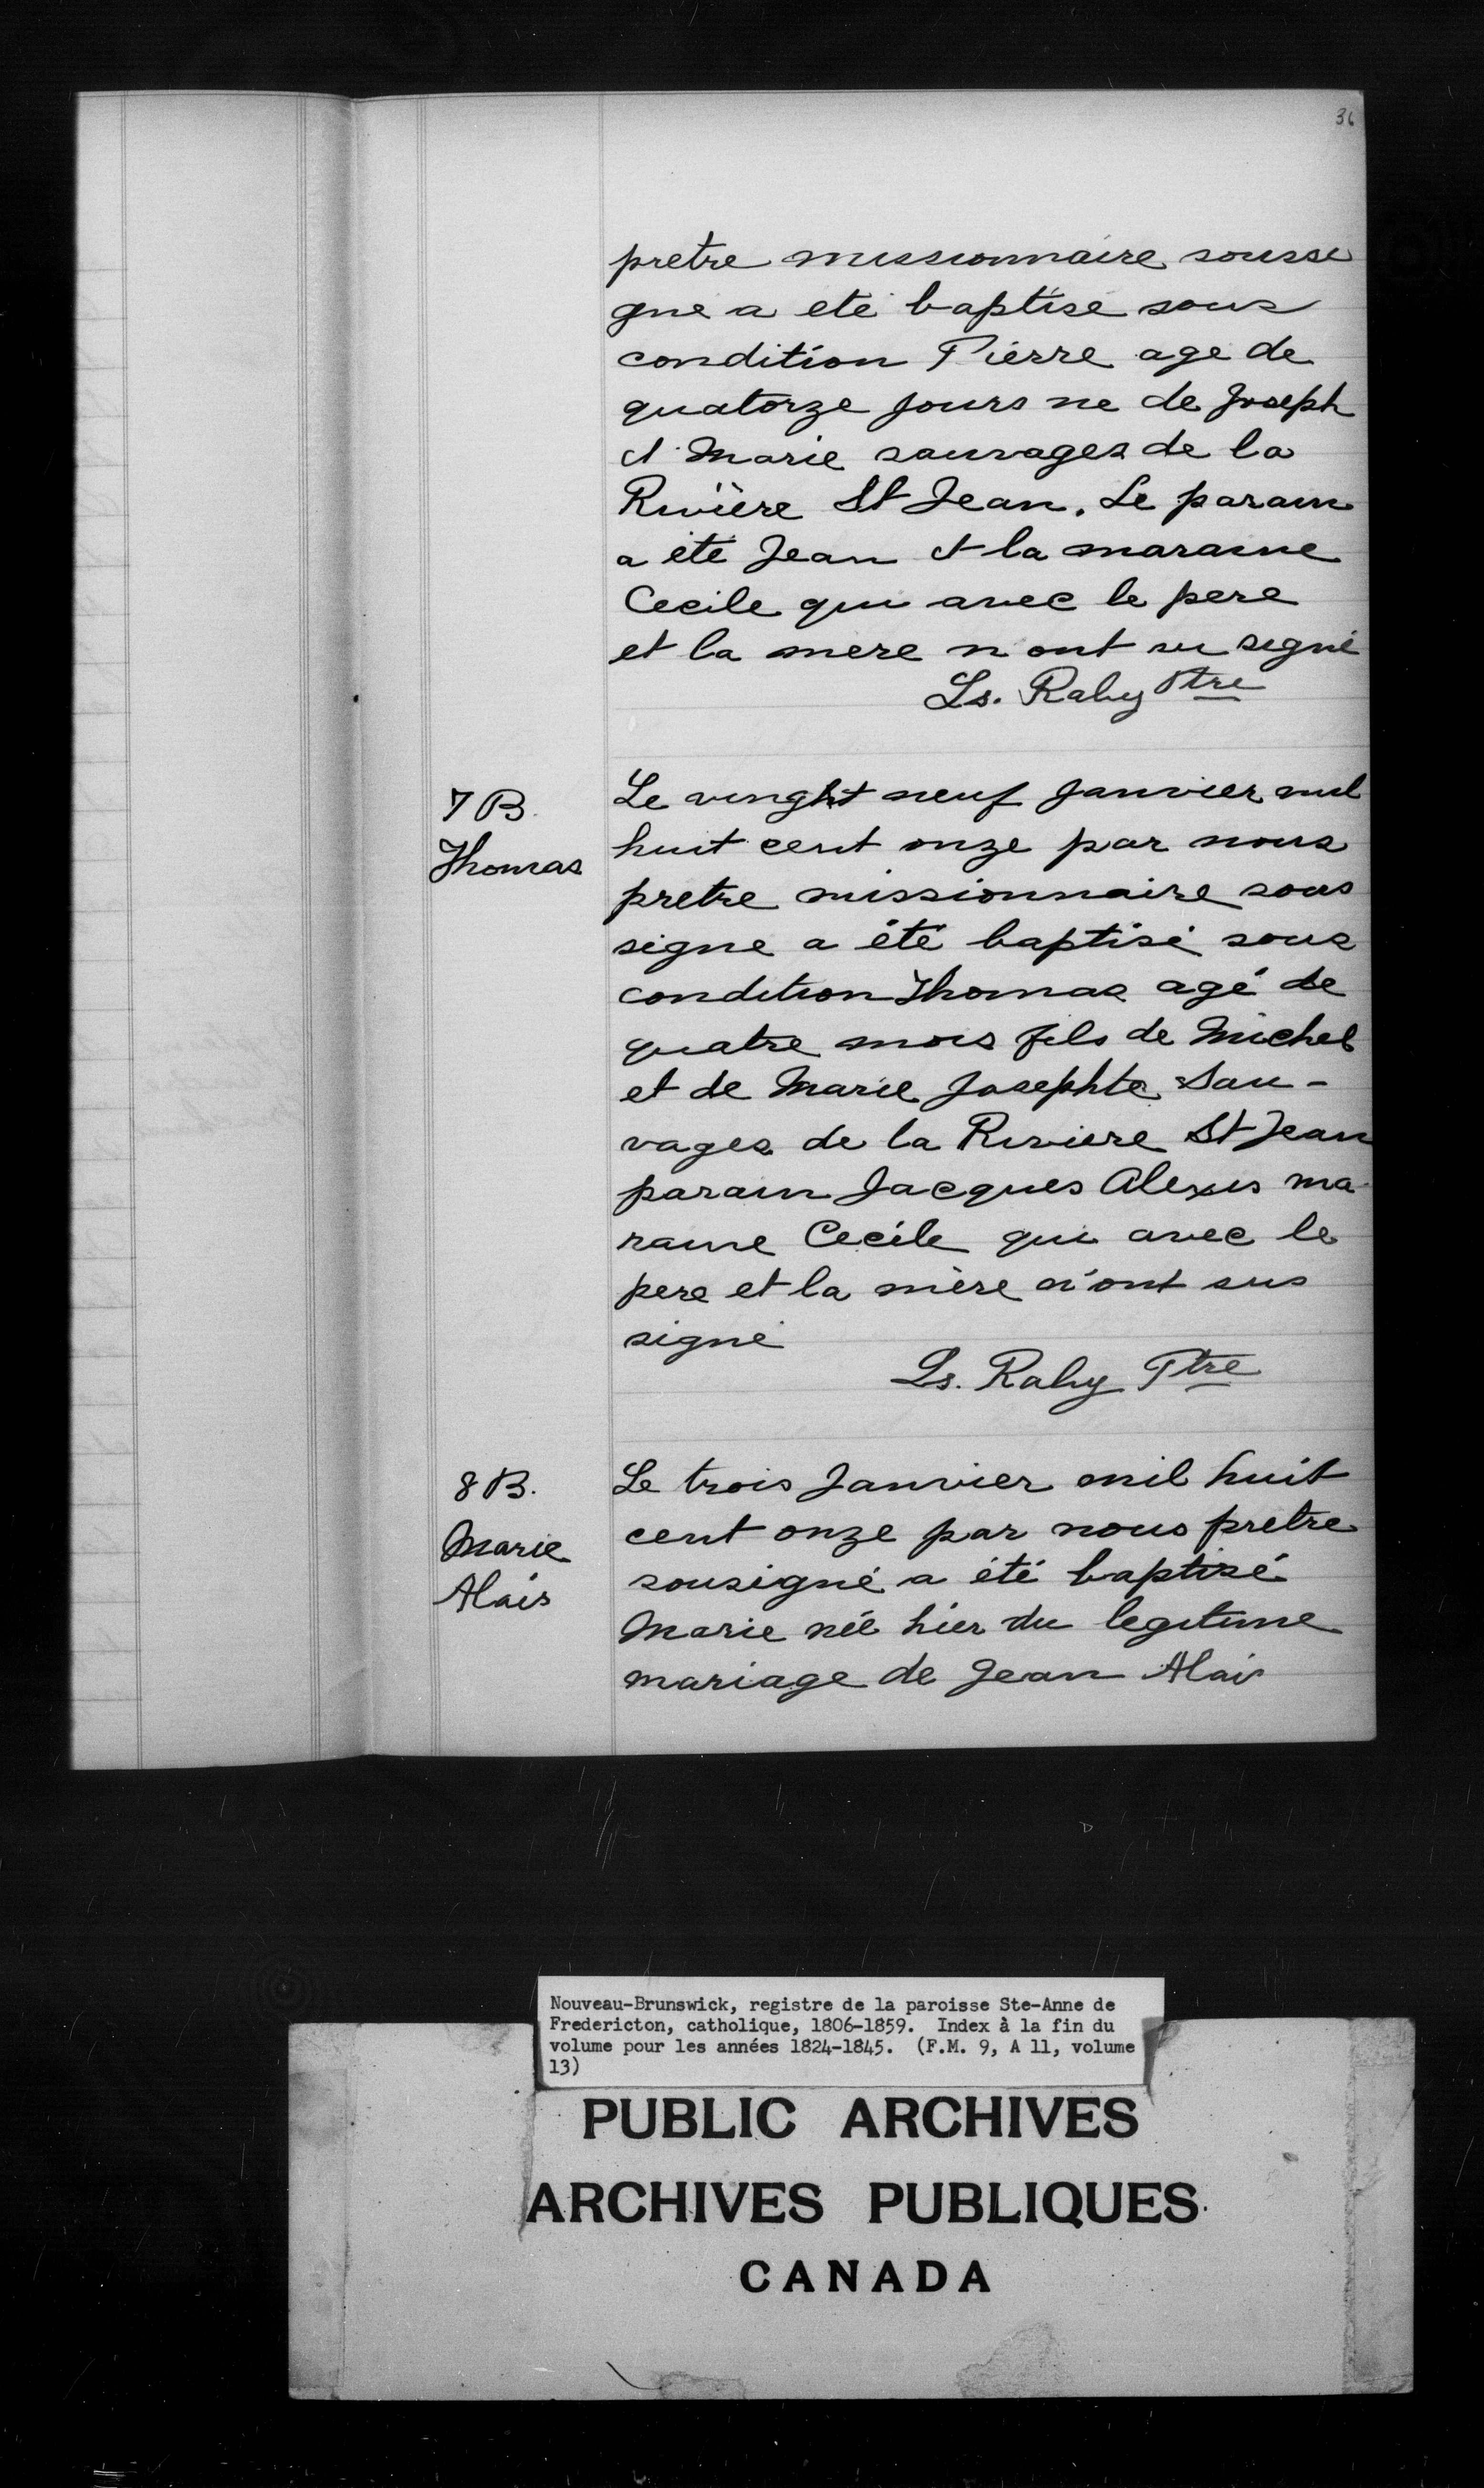 36
pretre missionnaire soussi
gne a eté baptisé sous
condition Pierre age de
quatorze jours ne de Joseph
et Marie sauvages de la
Rivière St Jean. Le parain
a été Jean et la maraine
Cecile qui avec le pere
et la mere n'ont su signé
Ls. Raby Ptre
7 B.
Thomas
Le vinght neuf Janvier mil
huit cent onze par nous
pretre missionnaire sous
signe a été baptisé sous
condition Thomas agé de
quatre mois fils de Michel
et de Marie Josephte Sau-
vages de la Riviere St Jean
parain Jacques Alexis ma
raine Cecile qui avec le
pere et la mère n'ont sus
signé
Ls. Raby Ptre
8 B.
Marie
Alais
Le trois Janvier mil huit
cent onze par nous pretre
sousigné a été baptisé
Marie née hier du legitime
mariage de Jean Alais
Nouveau-Brunswick, registre de la paroisse Ste-Anne de
Fredericton, catholique, 1806-1859. Index à la fin du
volume pour les années 1824-1845. (F.M. 9, A 11, volume
13)
PUBLIC ARCHIVES
ARCHIVES PUBLIQUES
CANADA